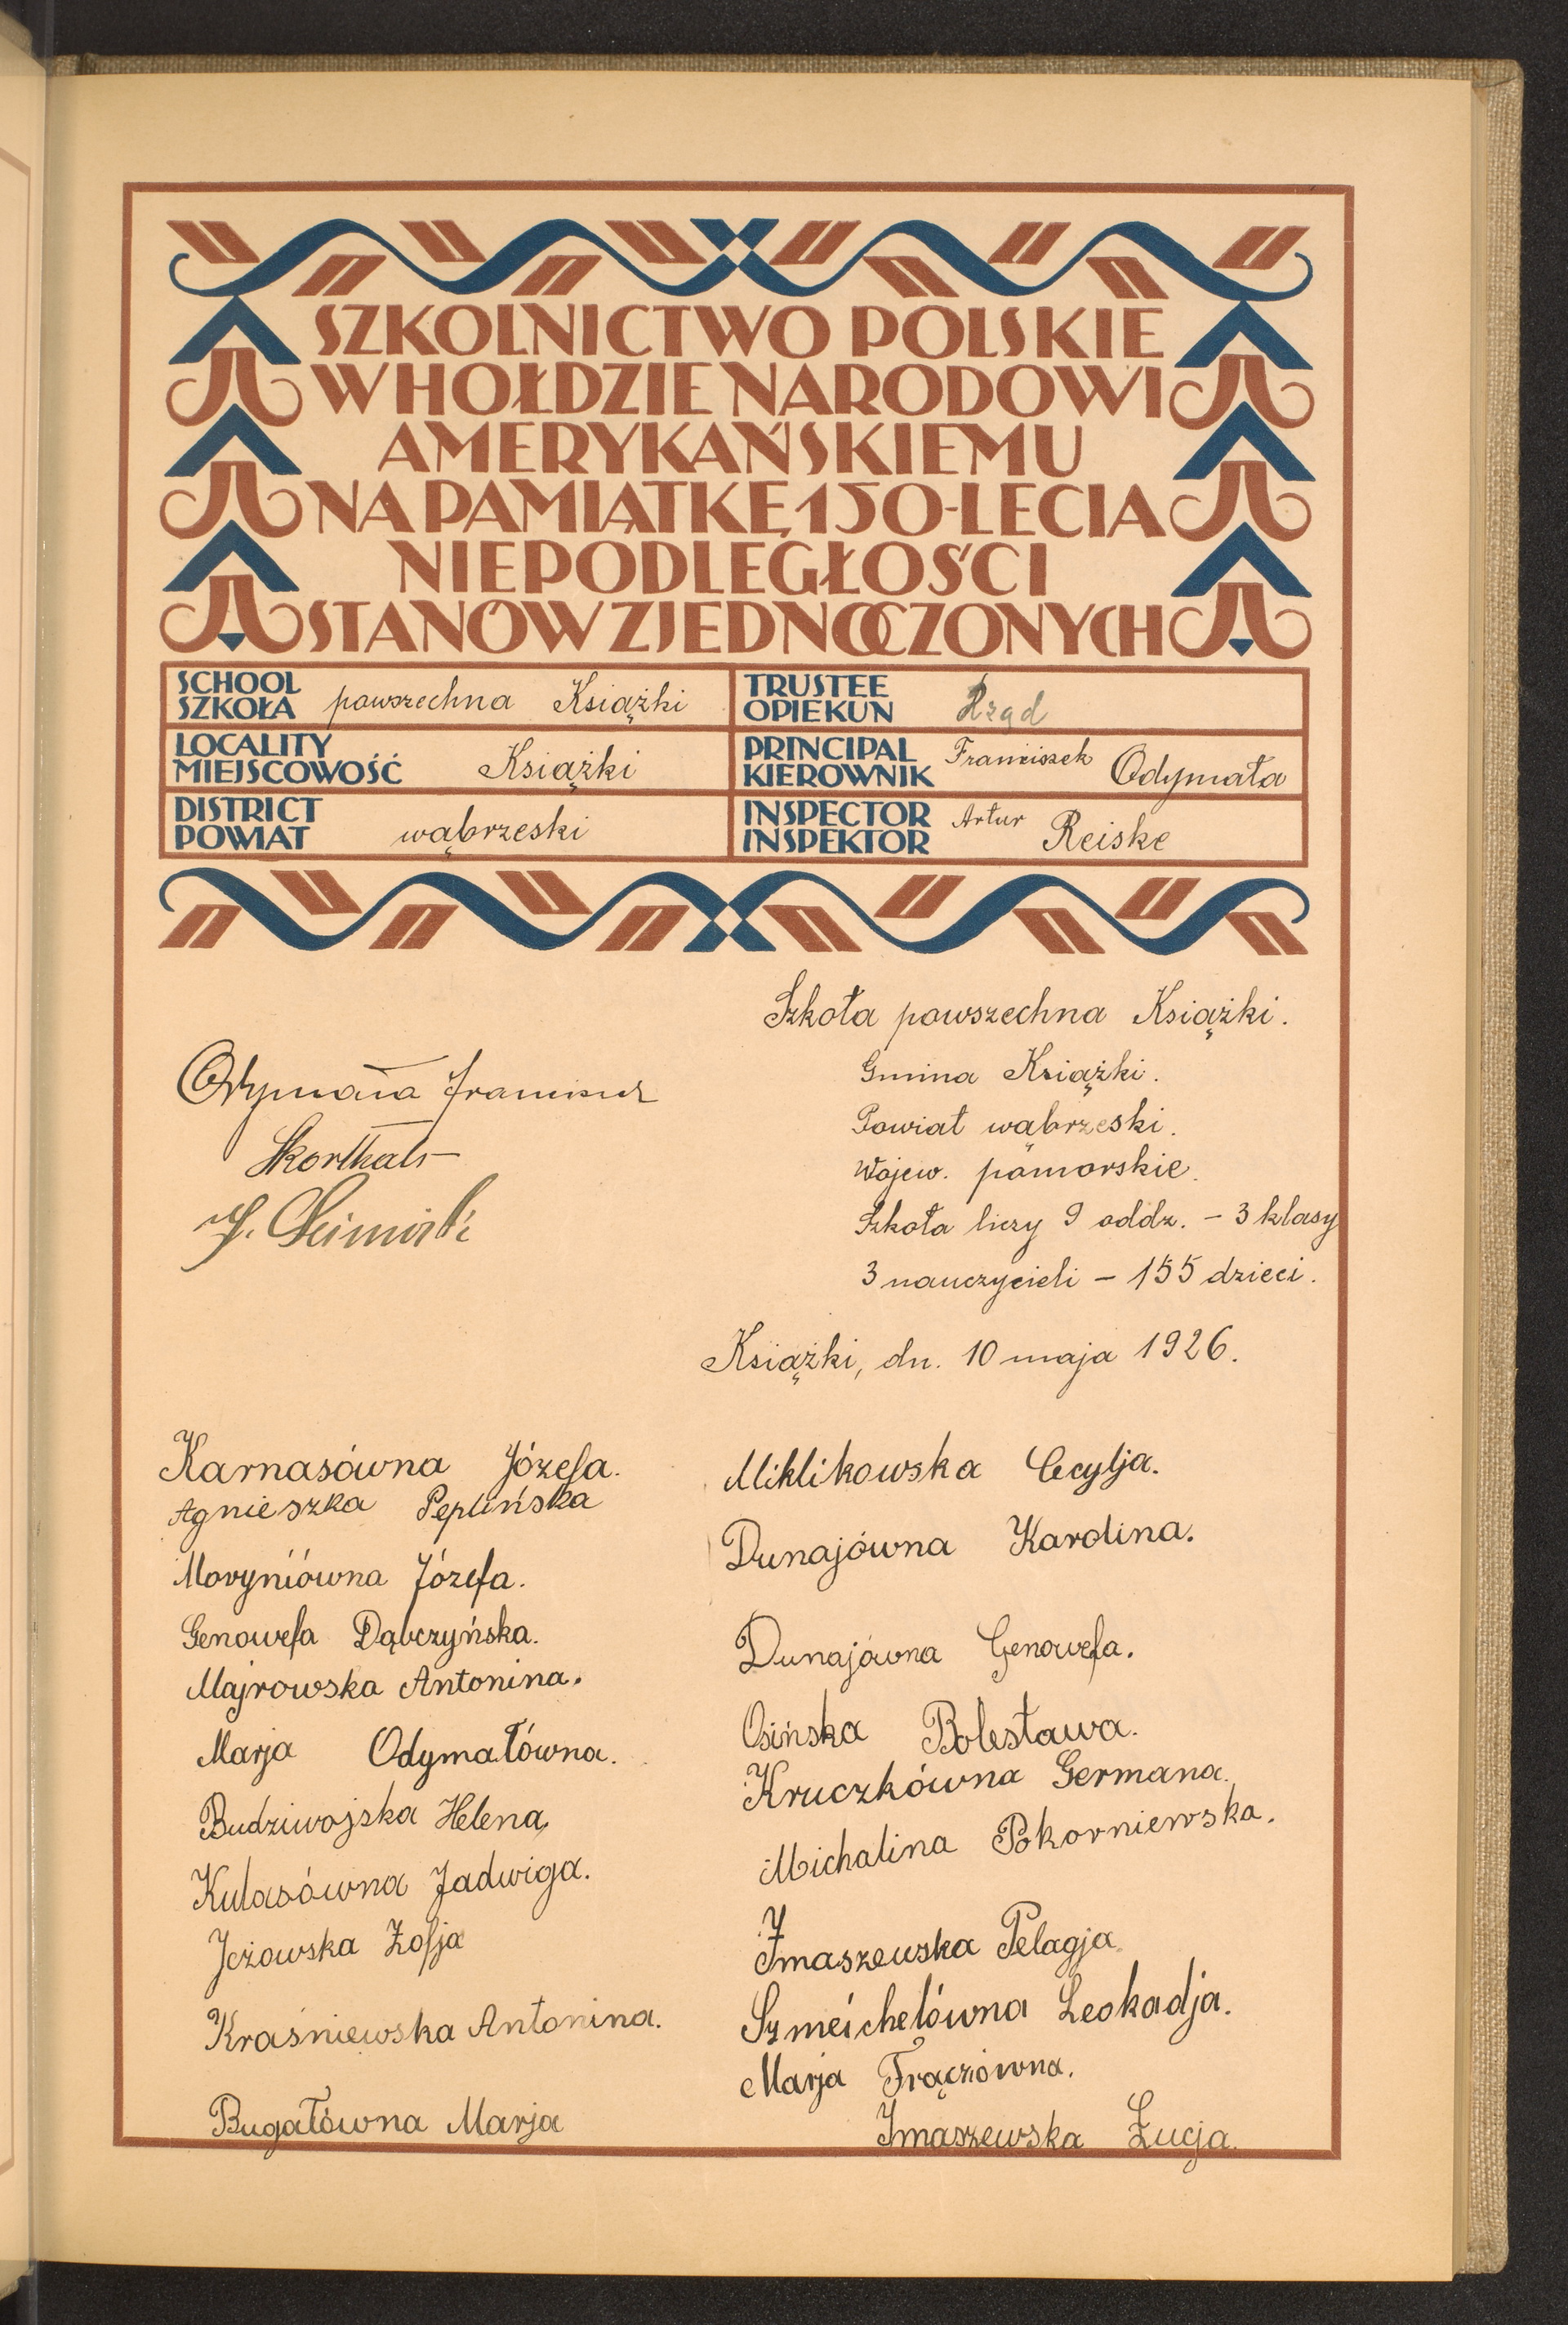 SZKOLNICTWO POLSKIE
W HOŁDZIE NARODOWI
AMERYKAŃSKIEMU
NA PAMIĄTKĘ 150-LECIA
NIEPODLEGŁOŚCI
STANÓW ZJEDNOCZONYCH
SCHOOL
SZKOŁA powszechna Książki
TRUSTEE
OPIEKUN Rząd
LOCALITY
MIEJSCOWOŚĆ Książki
PRINCIPAL
KIEROWNIK Franciszek Odymała
DISTRICT
POWIAT wąbrzeski
INSPECTOR
INSPEKTOR Artur Reiske
Szkoła powszechna Książki.
Gmina Książki.
Powiat wąbrzeski.
Wojew. pomorskie.
Szkoła liczy 9 oddz. – 3 klasy
3 nauczycieli – 155 dzieci.
Odymała Franciszek
Książki, dn. 10 maja 1926.
Karnasówna Józefa.
Agnieszka Peplińska
Moryníówna Józefa.
Genowefa Dąbczyńska.
Majrowska Antonina.
Marja Odymałówna.
Budziwojska Helena,
Kulasówna Jadwiga.
Jeżowska Zofja
Kraśniewska Antonina.
Bugałówna Marja
Miklikowska Cecylja.
Dunajówna Karolina.
Dunajówna Genowefa.
Osińska Bolesława.
Kruczkówna Germana.
Michalina Pokorniewska.
Imaszewska Pelagja.
Szmeichelówna Leokadja.
Marja Frączówna.
Imaszewska Łucja.